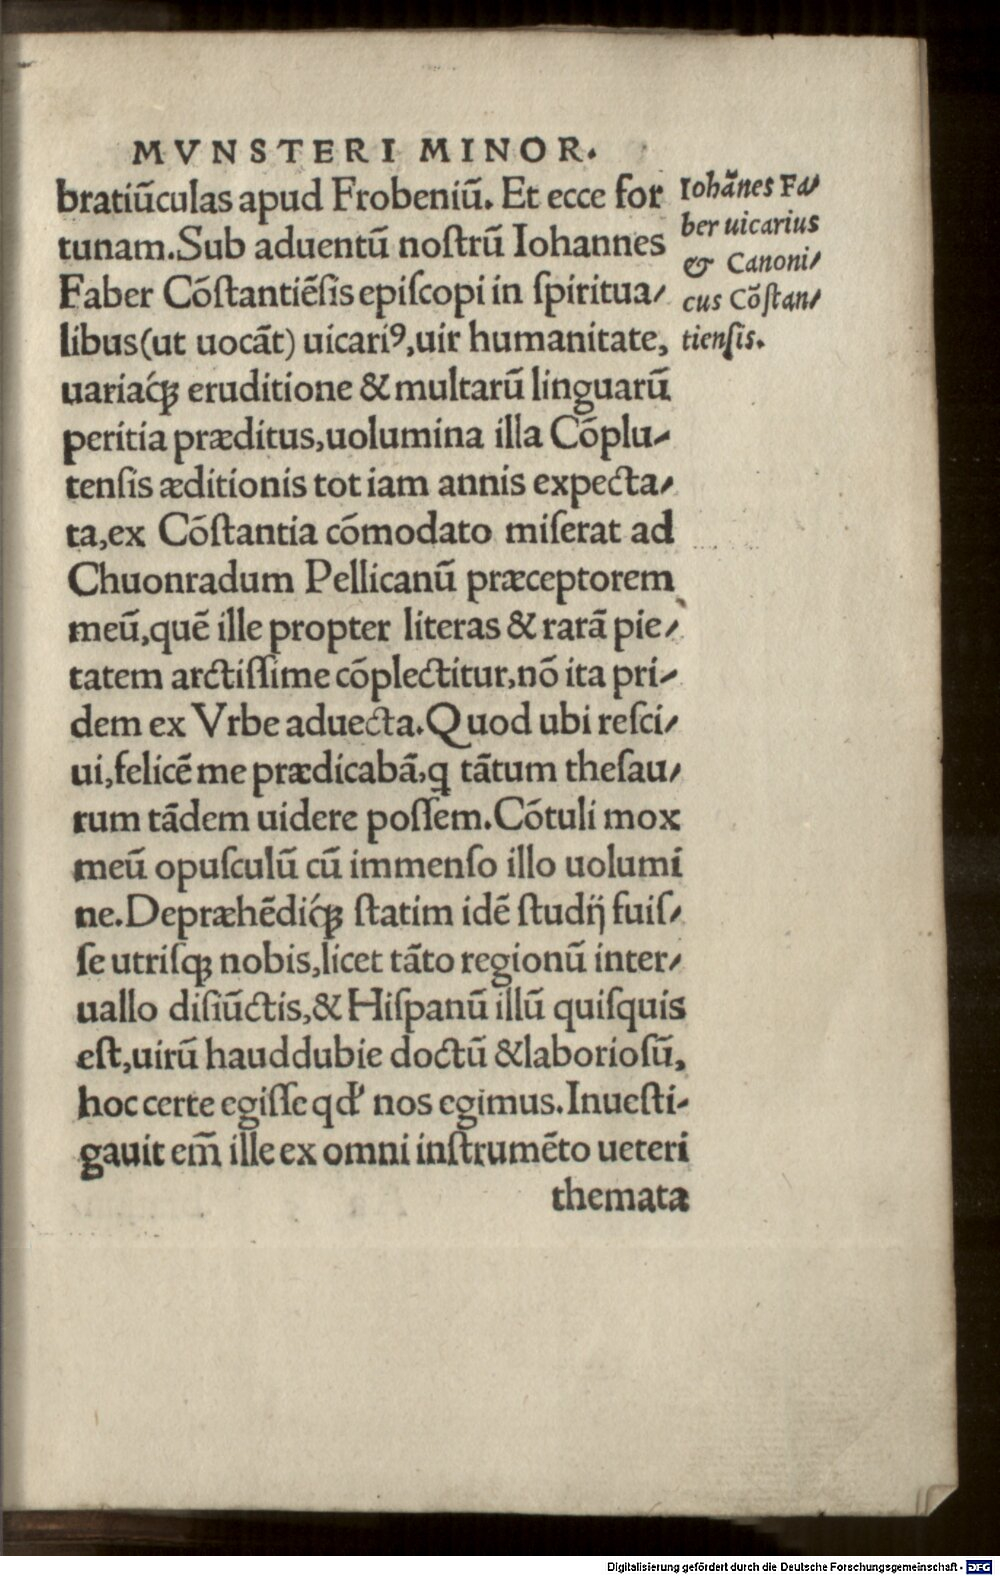 MVNSTERI MINOR.
bratiũculas apud Frobeniũ. Et ecce for
tunam. Sub aduentũ noſtrũ Iohannes
Faber Cõſtantiẽſis epiſcopi in ſpiritua⸗
libus (ut uocãt) uicariꝰ, uir humanitate,
uariaq́ꝫ eruditione & multarũ linguarũ
peritia præditus, uolumina illa Cõplu⸗
tenſis æditionis tot iam annis expecta⸗
ta, ex Cõſtantia cõmodato miſerat ad
Chuonradum Pellicanũ præceptorem
meũ, quẽ ille propter literas & rarã pie⸗
tatem arctiſſime cõplectitur, nõ ita pri⸗
dem ex Vrbe aduecta. Quod ubi reſci⸗
ui, felicẽ me prædicabã, ꝙ tãtum theſau⸗
rum tãdem uidere poſſem. Cõtuli mox
meũ opuſculũ cũ immenſo illo uolumi
ne. Depræhẽdiq́ꝫ ſtatim idẽ ſtudij fuiſ⸗
ſe utriſqꝫ nobis, licet tãto regionũ inter⸗
uallo diſiũctis, & Hiſpanũ illũ quiſquis
eſt, uirũ haud dubie doctũ & laborioſũ,
hoc certe egiſſe qd' nos egimus. Inueſti⸗
gauit em̃ ille ex omni inſtrumẽto ueteri
themata
Iohãnes Fa⸗
ber uicarius
& Canoni⸗
cus Cõſtan⸗
tienſis.
Digitalisierung gefördert durch die Deutsche Forschungsgemeinschaft - DFG